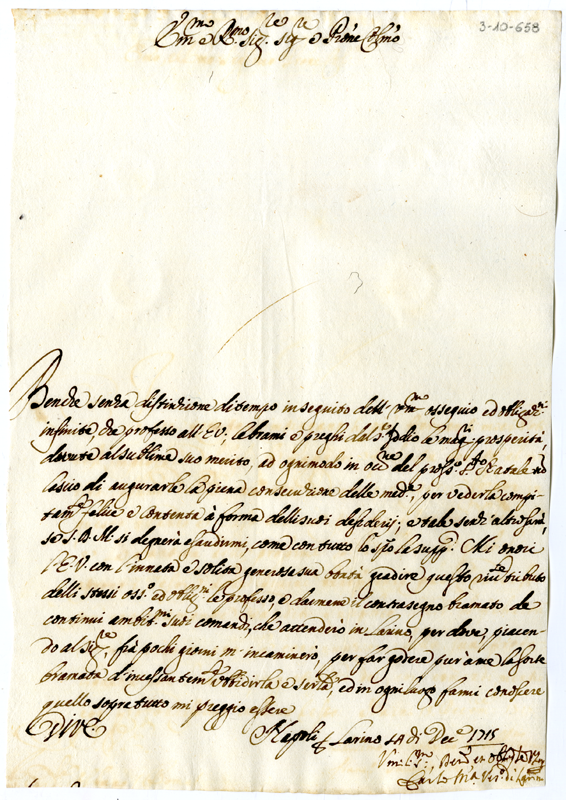 3-10-658
Em.mo e R.mo Sig.re Sig.re e P̃rone Col̃mo
Benche senza distinzione di tempo in seguito dell' um.mo ossequio ed obligaz.ni
infinite, che professo all' E.V. le brami e preghi dal S. Iddio le mag.ri prosperità,
dovute al sublime suo merito, ad ogni modo in occ.ne del pross.o S.to Natale nõ
lascio di augurarle la piena consecuzione delle med.e, per vederla compi-
tam.te felice e contenta à forma delli suoi desiderij; e tale senz' altro sarà,
se S.D.M. si degnerà esaudirmi, come con tutto lo sp̃o la supp.o. Mi onori
l' E.V. con l' innata e solita generosa sua bontà gradire questo tributo
delli stessi oss.o ed oblig.ni le professo, e darmene il contrasegno bramato de
continui ambit.mi suoi comandi, che attenderò in Larino, per dove, piacen-
do al Sig.re, frà pochi giorni m' incaminerò, per far godere pur à me la sorte
bramata d' incessantem.te ubbidirla e servirla, ed in ogni luogo farmi conoscere
quello sopra tutto mi preggio essere
Di V.E.
Napoli Larino 14 di Dec.e 1715
Um.mo
Carlo M.a Vesc.o di Larino